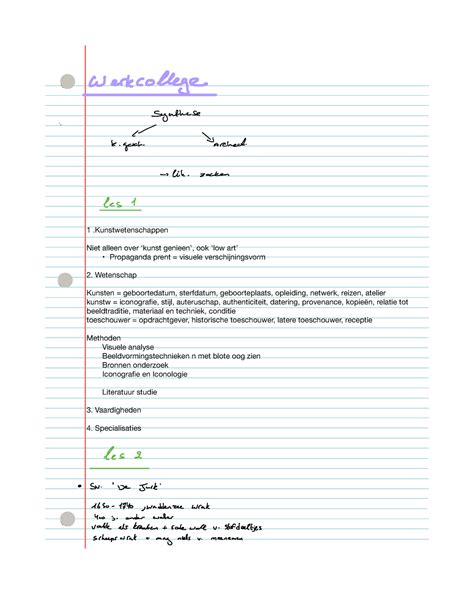 Werkcollege
Synthese
k. gesch. archeol.
→ lit. zoeken
les 1
1 .Kunstwetenschappen
Niet alleen over 'kunst genieen', ook 'low art'
• Propaganda prent = visuele verschijningsvorm
2. Wetenschap
Kunsten = geboortedatum, sterfdatum, geboorteplaats, opleiding, netwerk, reizen, atelier
kunstw = iconografie, stijl, auteruschap, authenticiteit, datering, provenance, kopieën, relatie tot
beeldtraditie, materiaal en techniek, conditie
toeschouwer = opdrachtgever, historische toeschouwer, latere toeschouwer, receptie
Methoden
Visuele analyse
Beeldvormingstechnieken n met blote oog zien
Bronnen onderzoek
Iconografie en Iconologie
Literatuur studie
3. Vaardigheden
4. Specialisaties
les 2
• 'De Jurk'
1650 - waddenzee wrak
400 j. onder water
v.
scheepswrak = mag niets v. meenemen